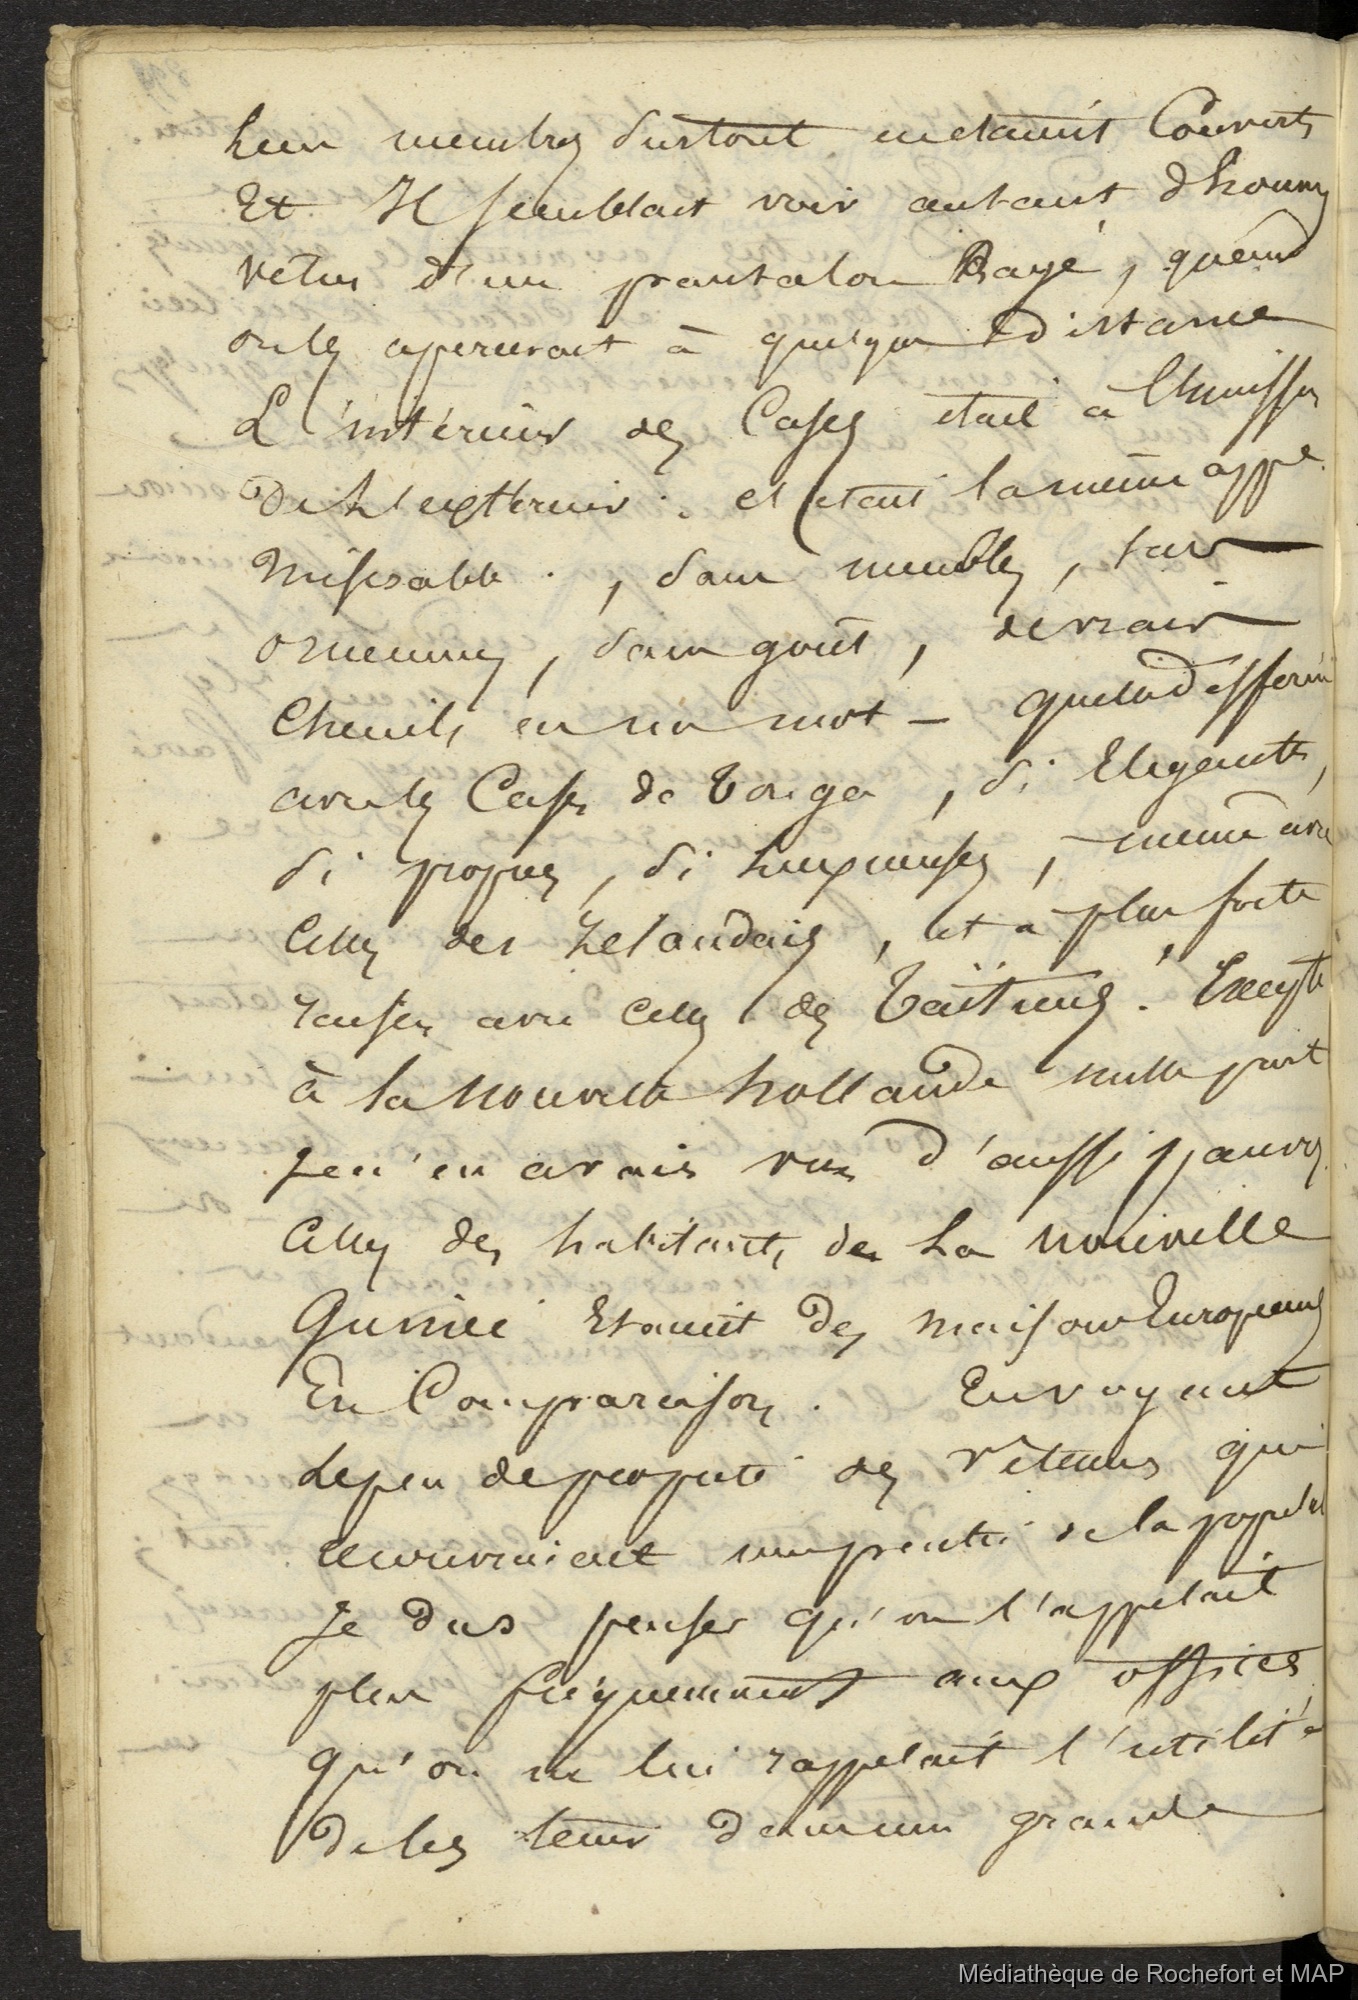 Leurs membres surtout en etaient Couverts
Et Il semblait voir autant d'hommes
vetus d'un pantalon Rayé, quand
on les apercevait à quelque distance
L'intérieur des Cases était à l'unisson
De l'exterieur. et etait la même appe
miserable., sans meubles, sans
ornemens, sans gout, de vrais
Chenils en un mot - quelle differen
avec les Cases de Tonga, si Elegantes,
si propres, si luxueuses, même avec
Celles des Zelandais, et a plus forte
raison avec celles des Taïtiens! Excepté
à la Nouvelle hollande nulle part
je n'en avais vus d'aussi pauvres
Celles des habitants de La Nouvelle
Guinée Etaient des maisons Europeennes
En Comparaison. En voyant
Le peu de propreté des vêtemens qui
recouvraient une partie de la populat
Je dus penser qu'on l'appelait
plus fréquemment aux offices
qu'on ne lui rappelait l'utilité
de les tenir dans une grande
Médiathèque de Rochefort et MAP